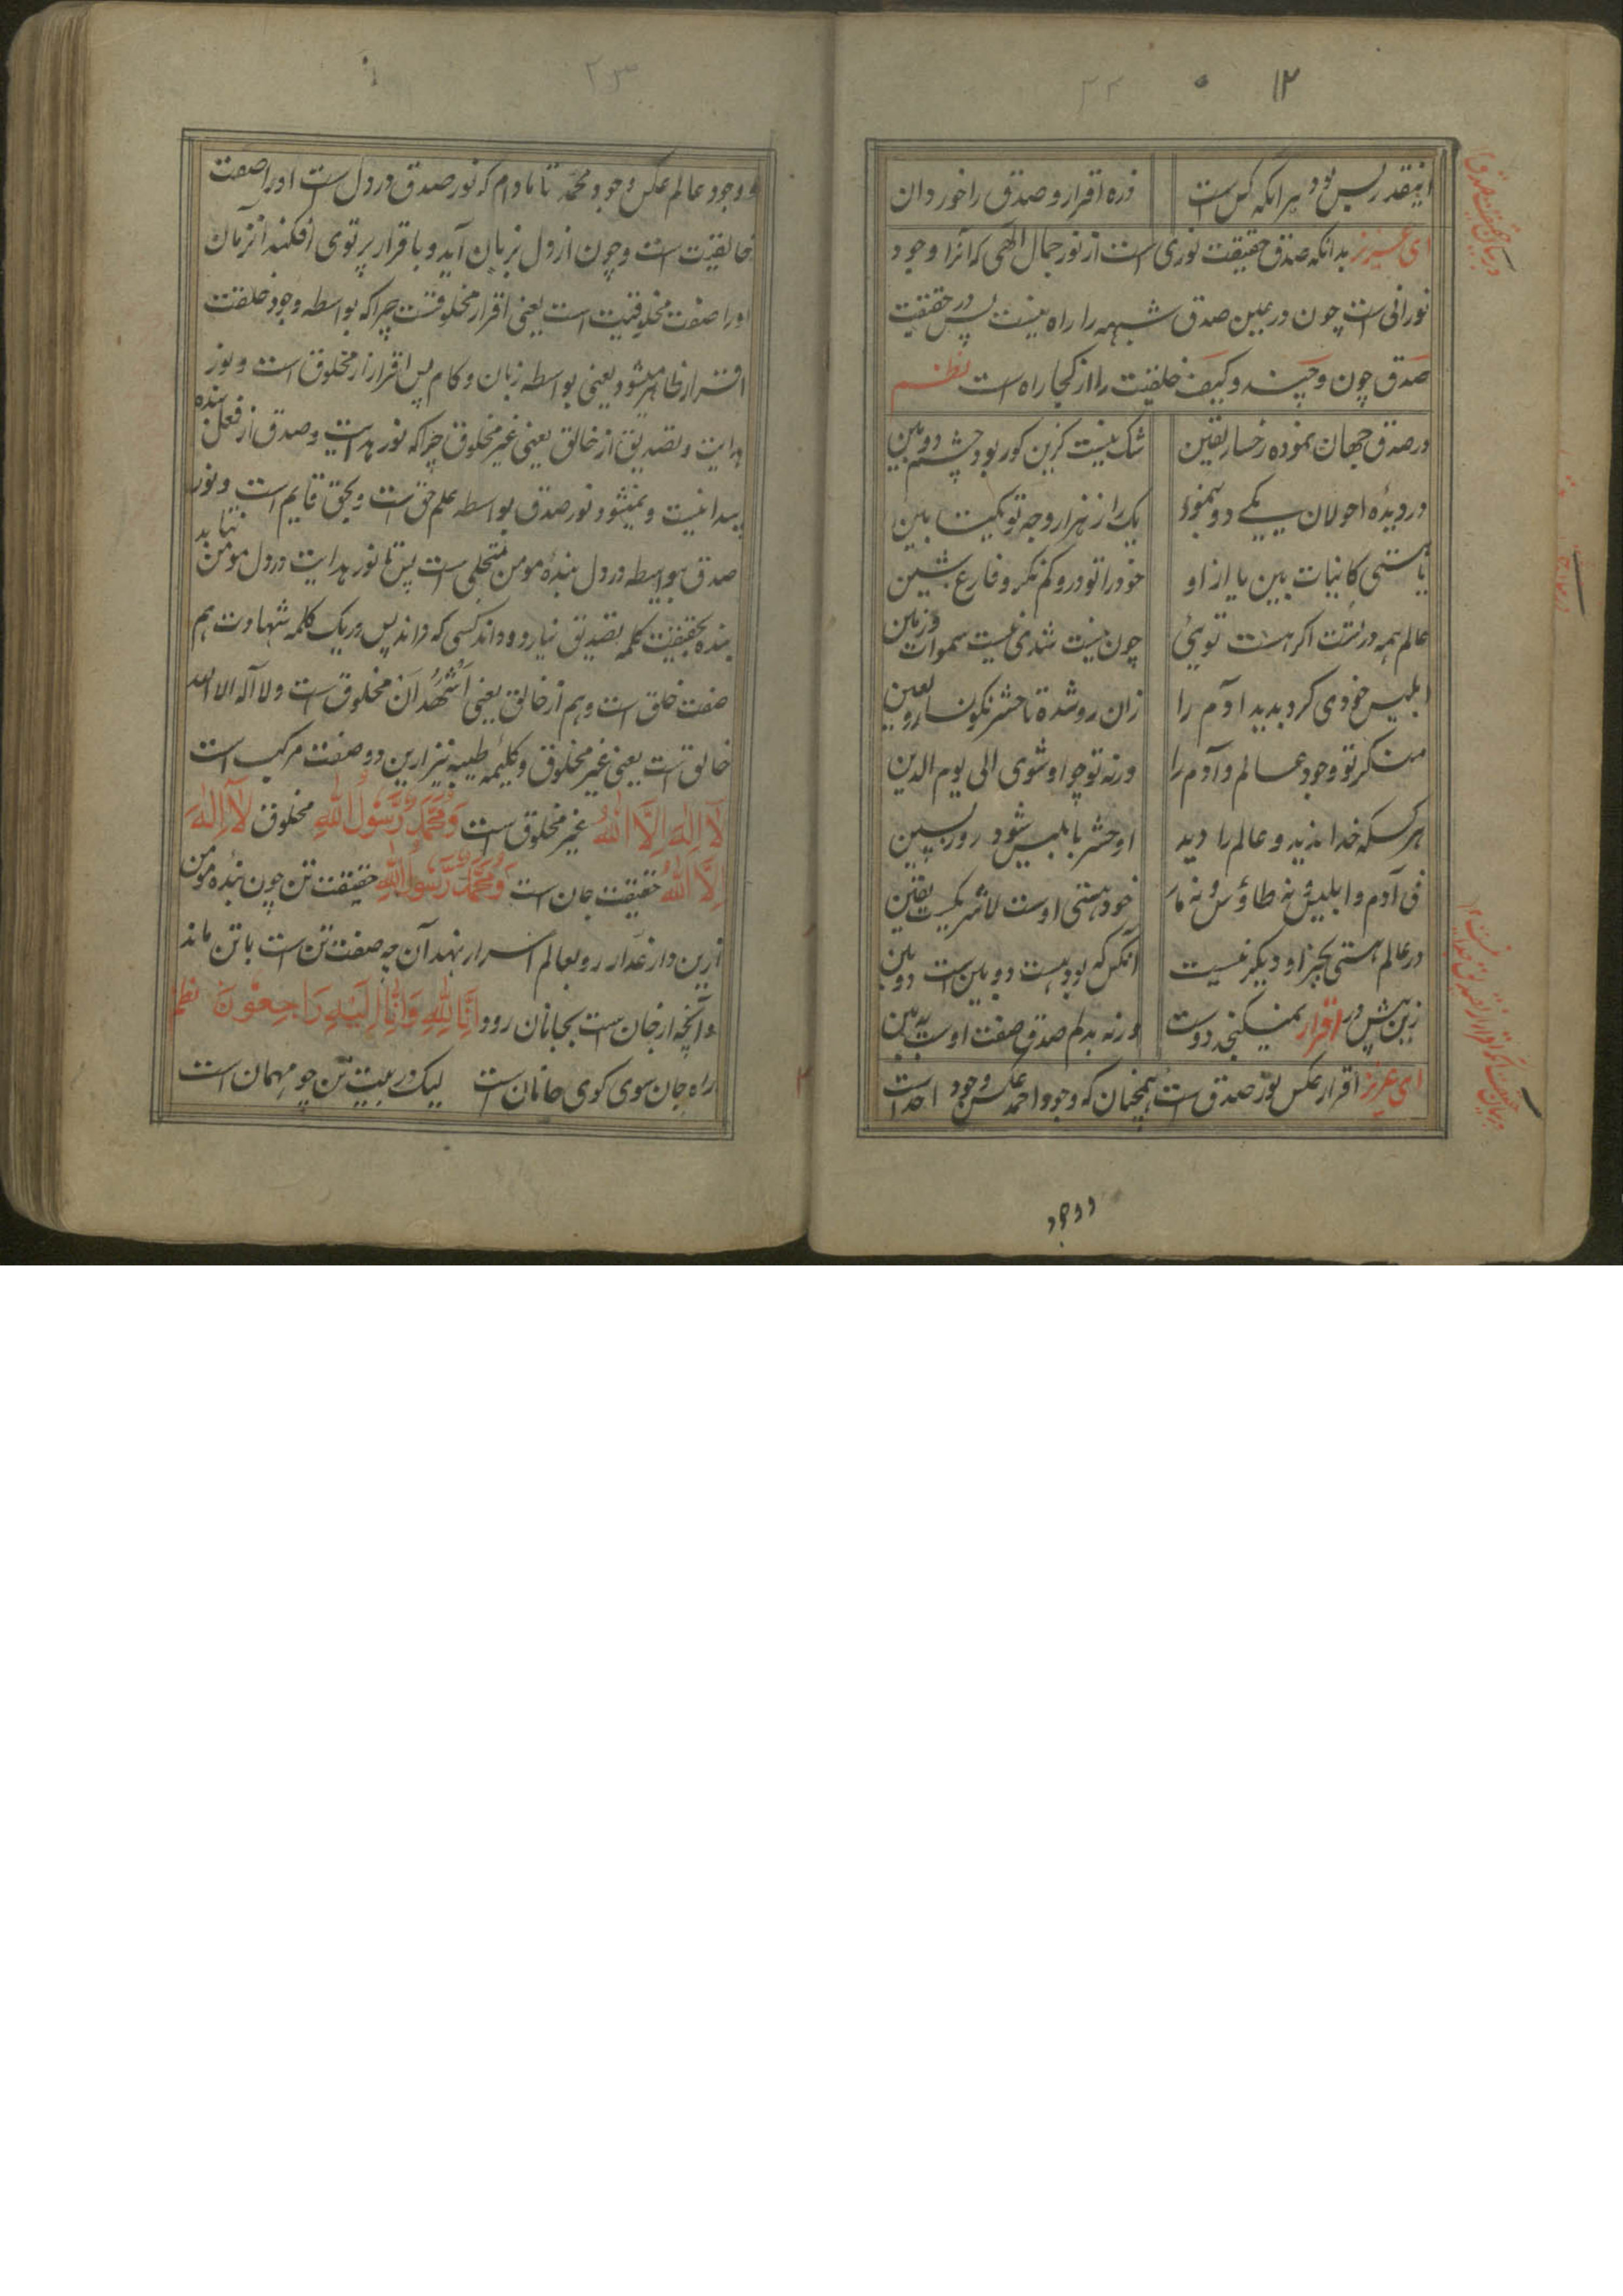 ۱۲
اینقدر بس بود هر آنکه کس است ذره اقرار و صدق را خور دان
ای عزیز بدانکه صدق حقیقت نوری است از نور جمال الهی که آنرا وجود
نورانی است چون در عین صدق شبهه را راه نیست پس در حقیقت
صدق چون و چند و کیف خلقیت را از کجا راه است نظم
در صدق جهان نموده رخسار یقین شک نیست کزین کور بود چشم دوبین
در دیده احولان یکے دو بنمود یک را ز هزار وجه تو یکیست ببین
با هستی کاینات بین یا از او خود را تو درو کم نکر و فارغ بنشین
عالم همه درتست اکر هست توئی چون نیست شدی نیست سموات و زمین
ابلیس خودی کرد بدید آدم را زان رو شده تا حشر نکونسار لعین
منکر تو وجود عالم و آدم را ورنه تو چو او شوی الی یوم الدین
هر کسکه خدا ندید و عالم را دید او حشر بابلیس شود روز پسین
نی آدم و ابلیس نه طاؤس و نه مار خود هستی اوست لاشریکست یقین
در عالم هستی بجز او دیکر نیست آنکس که بود هست دوبین است دوبین
زین بیش در اقرار نمیکنجد دوست ورنه بدلم صدق صفت اوست ببین
ای عزیز اقرار عکس نور صدق است همچنان که وجود احمد عکس وجود احد است
ووجود
۲۳
ووجود عالم عکس وجود محمد تا مادام که نور صدق در دل است او را صفت
خالقیت است و چون از دل بزبان آید و باقرار پرتوی افکند آنزمان
او را صفت مخلوقیت است یعنی اقرار مخلوقست چراکه بواسطه وجود خلقت
اقرار ظاهر میشود یعنی بواسطه زبان و کام پس اقرار از مخلوق است و نور
هدایت و تصدیق از خالق یعنی غیر مخلوق چراکه نور هدایت و صدق از فعل بنده
پیدا نیست و نمیشود نور صدق بواسطه علم حق است و بحق قایم است و نور
صدق بواسطه در دل بندهٔ مومن متجلی است پس تا نور هدایت در دل مومن نتابد
بنده بحقیقت کلمه تصدیق نیارد و داند کسی که داند پس در یک کلمه شهادت هم
صفت خلق است و هم از خالق یعنی اَشْهَدُ اَن مخلوق است و لا آله الا الله
خالق است یعنی غیر مخلوق و کلیمه طیبه نیز ازین دو صفت مرکب است
لَا اِلٰهَ اِلَّا اللهُ غیر مخلوق است وَمُحَمَّدٌ رَّسُولُ اللهِ مخلوق لَا اِلٰهَ
اِلَّا اللهُ حقیقت جان است وَمُحَمَّدٌ رَّسُولُ اللهِ حقیقت تن چون بندهٔ مومن
ازین دار غدار رو بعالم اسرار نهد آن چه صفت تن است با تن ماند
و آنچه از جان است بجانان رود اِنَّا لِلّٰهِ وَاِنَّا اِلَیْهِ رَاجِعُوْنَ نظم
راه جان سوی کوی جانان است لیک در بیت تن چو مهمان است